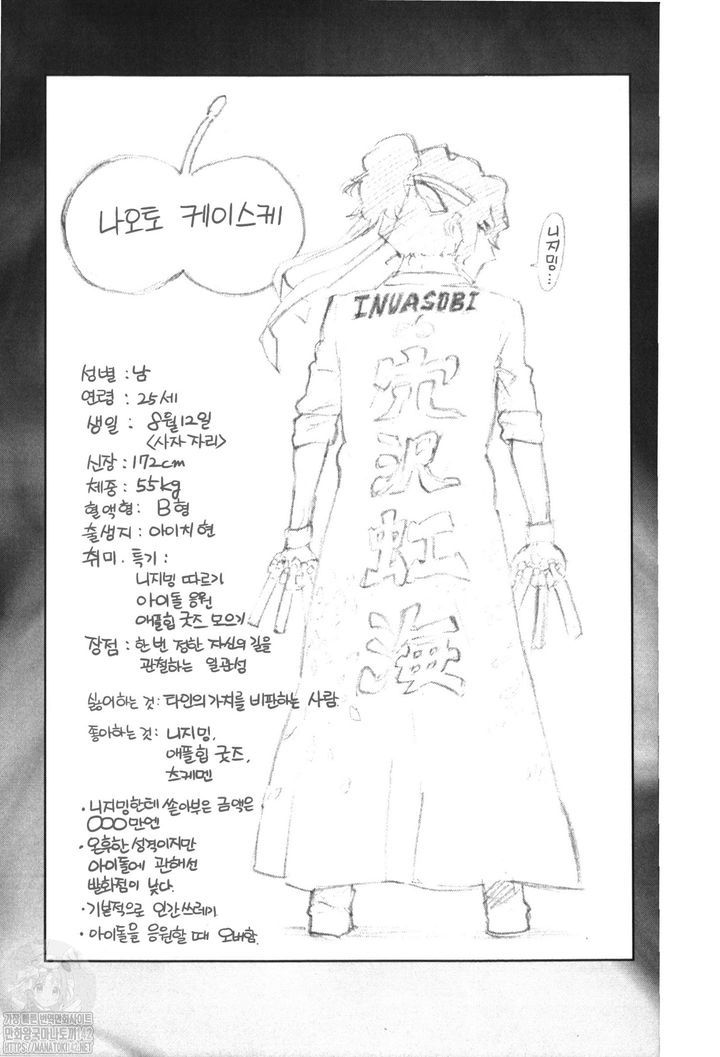 나오토 케이스케
니지밍...
INVASOBI
穴沢虹海
성별 : 남
연령 : 25세
생일 : 8월12일
<사자자리>
신장 : 172cm
체중 : 55kg
혈액형 : B형
출생지 : 아이치현
취미·특기 :
니지밍 따르기
아이돌 응원
애플힙 굿즈 모으기
장점 : 한 번 정한 자신의 길을
관철하는 일관성
싫어하는 것 : 타인의 가치를 비판하는 사람
좋아하는 것 : 니지밍,
애플힙 굿즈,
츠케멘
· 니지밍한테 쏟아부은 금액은
OOO만엔
· 온후한 성격이지만
아이돌에 관해선
발화점이 낮다.
· 기본적으로 인간쓰레기
· 아이돌을 응원할 때 오바함.
가장 빠른 번역만화사이트
만화왕국마나토끼142
HTTPS://MANATOKI142.NET